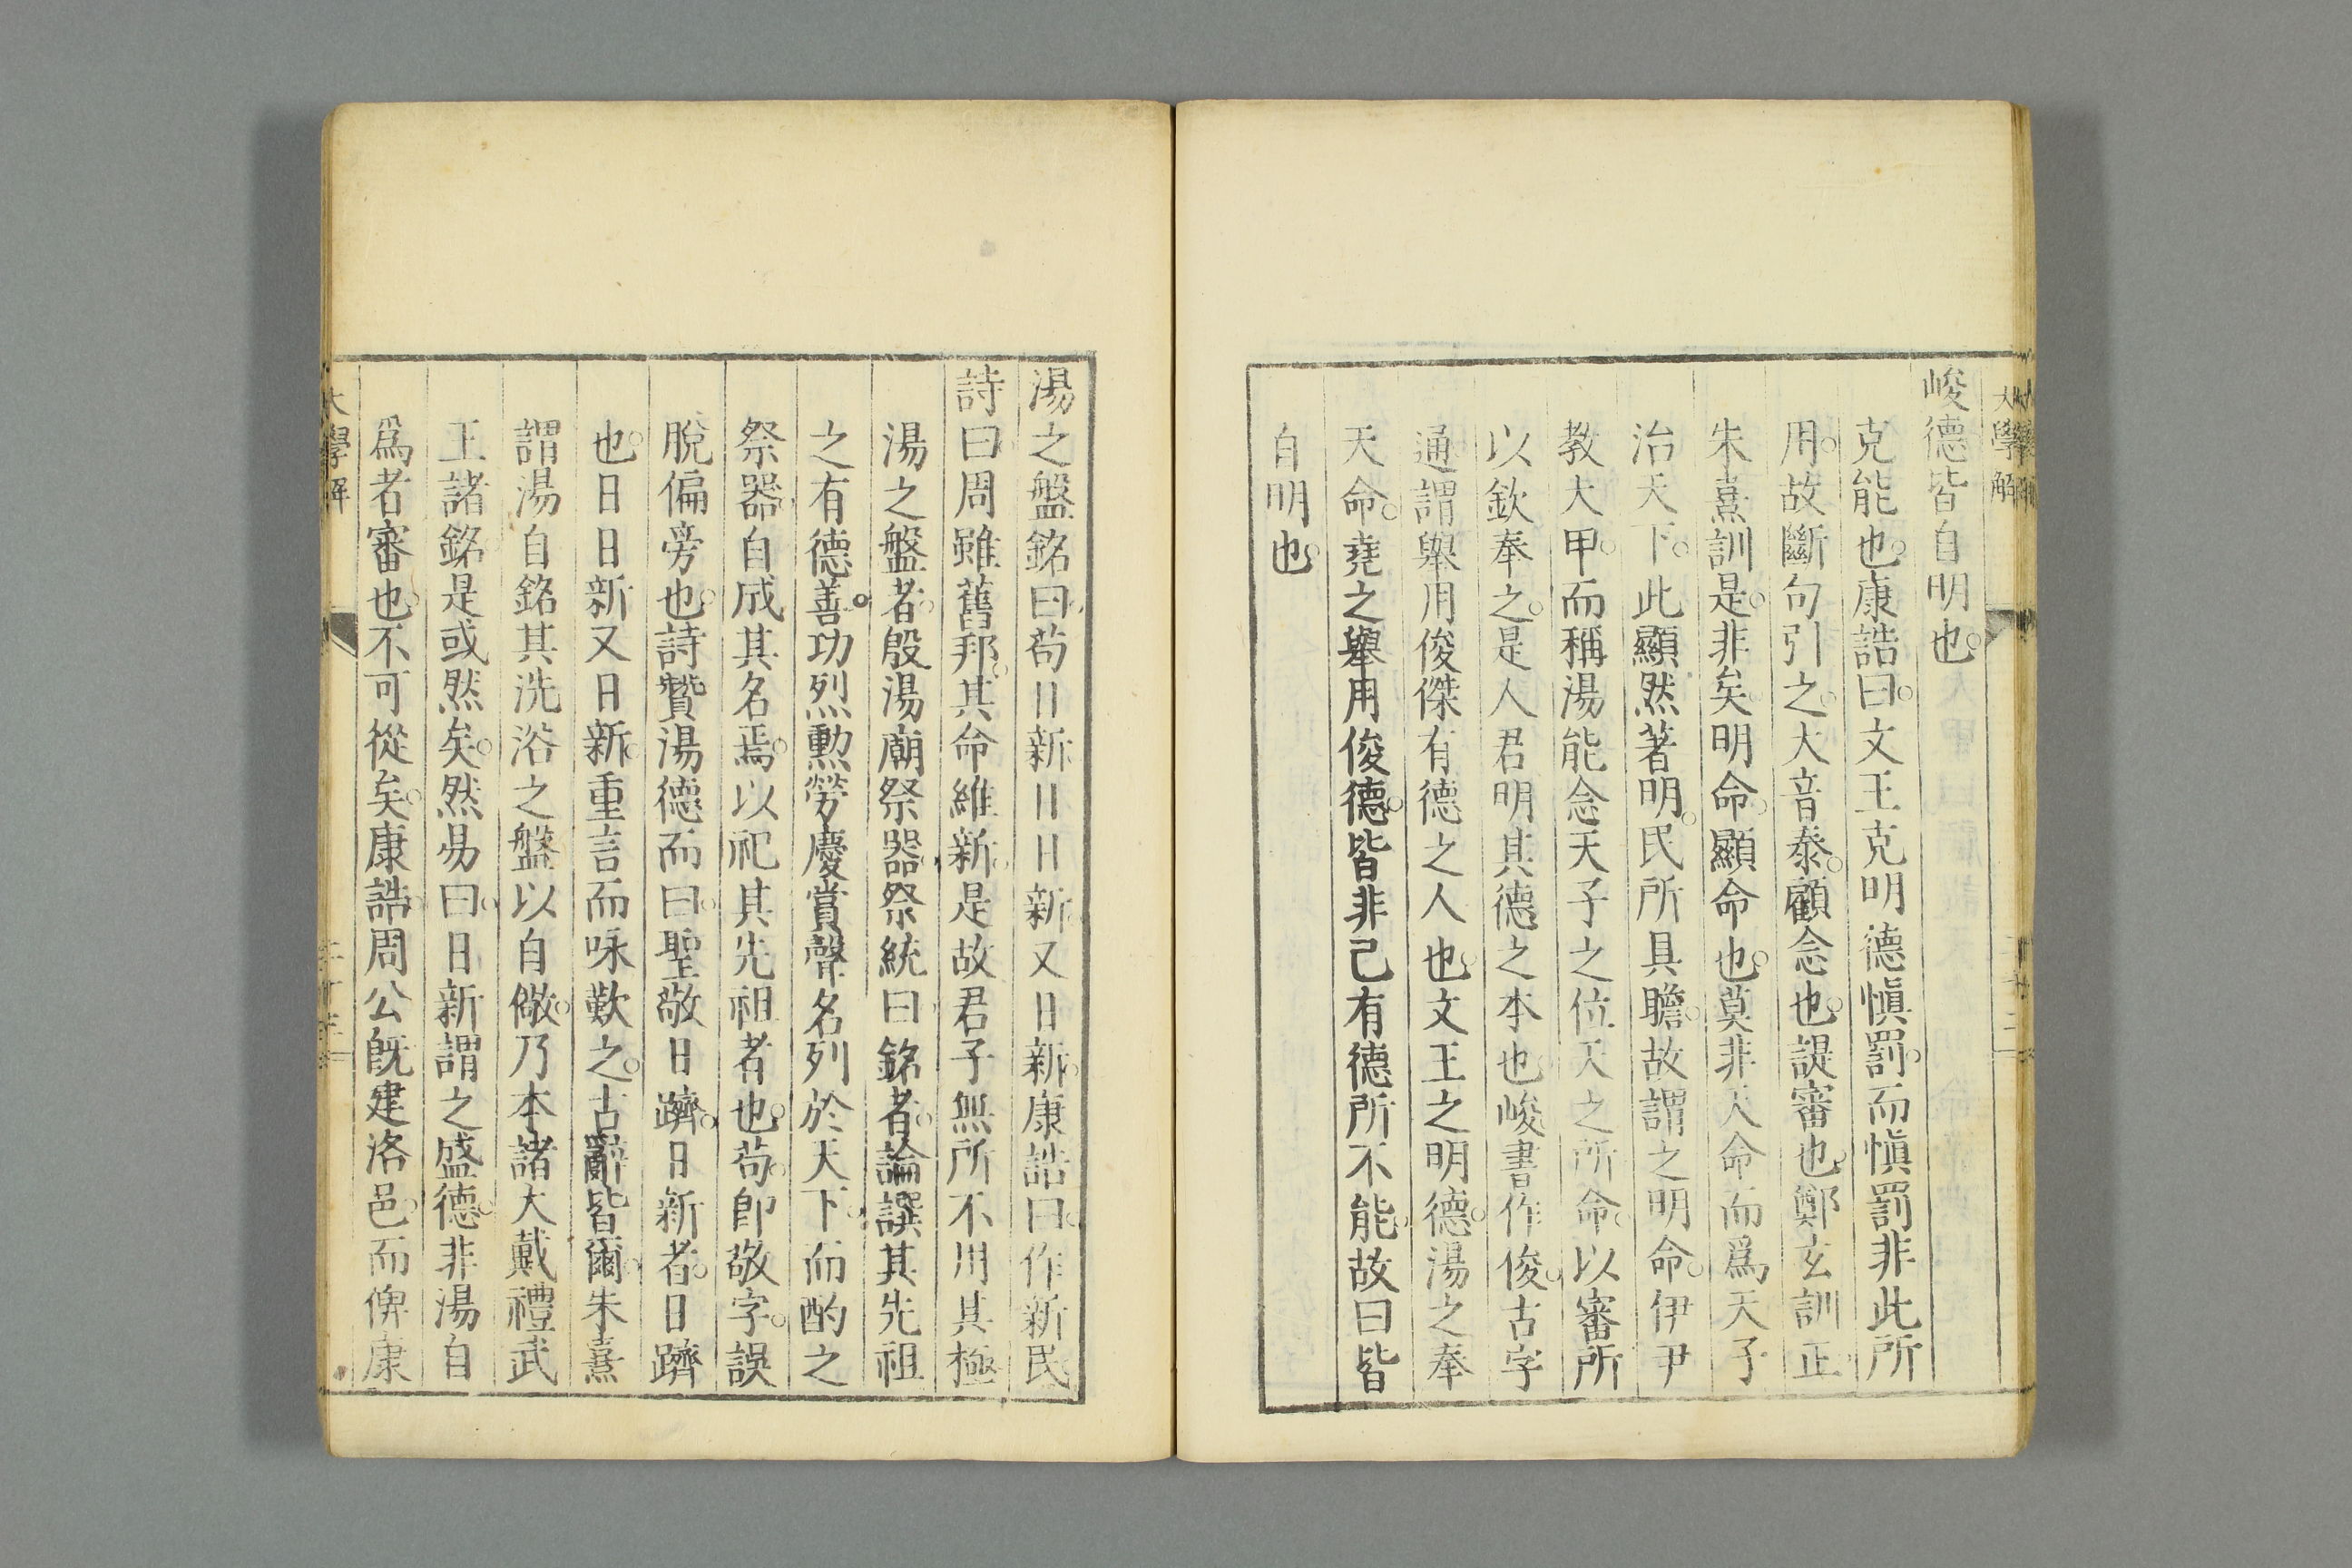 大學解
峻德皆自明也。
克能也。康誥曰。文王克明德愼罰。而愼罰非此所
用。故斷句引之。大音泰。顧念也。諟審也。鄭玄訓正。
朱熹訓是。非矣。明命。顯命也。莫非天命而爲天子
治天下。此顯然著明。民所具瞻。故謂之明命。伊尹
教大甲。而稱湯能念天子之位天之所命。以審所
以欽奉之。是人君明其德之本也。峻書作俊。古字
通。謂擧用俊傑有德之人也。文王之明德。湯之奉
天命。堯之擧用俊德。皆非己有德所不能。故曰皆
自明也。
湯之盤銘曰。苟日新。日日新。又日新。康誥曰。作新民。
詩曰。周雖舊邦。其命維新。是故君子無所不用其極
湯之盤者。殷湯廟祭器。祭統曰。銘者。論譔其先祖
之有德善。功烈勳勞慶賞聲名列於天下。而酌之
祭器。自成其名焉。以祀其先祖者也。苟。卽敬字。誤
脫偏旁也。詩贊湯德而曰。聖敬日躋。日新者。日躋
也。日日新又日新。重言而咏歎之。古辭皆爾。朱熹
謂湯自銘其洗浴之盤以自儆。乃本諸大戴禮武
王諸銘。是或然矣。然易曰。日新謂之盛德。非湯自
爲者審也。不可從矣。康誥。周公旣建洛邑。而俾康
大學解